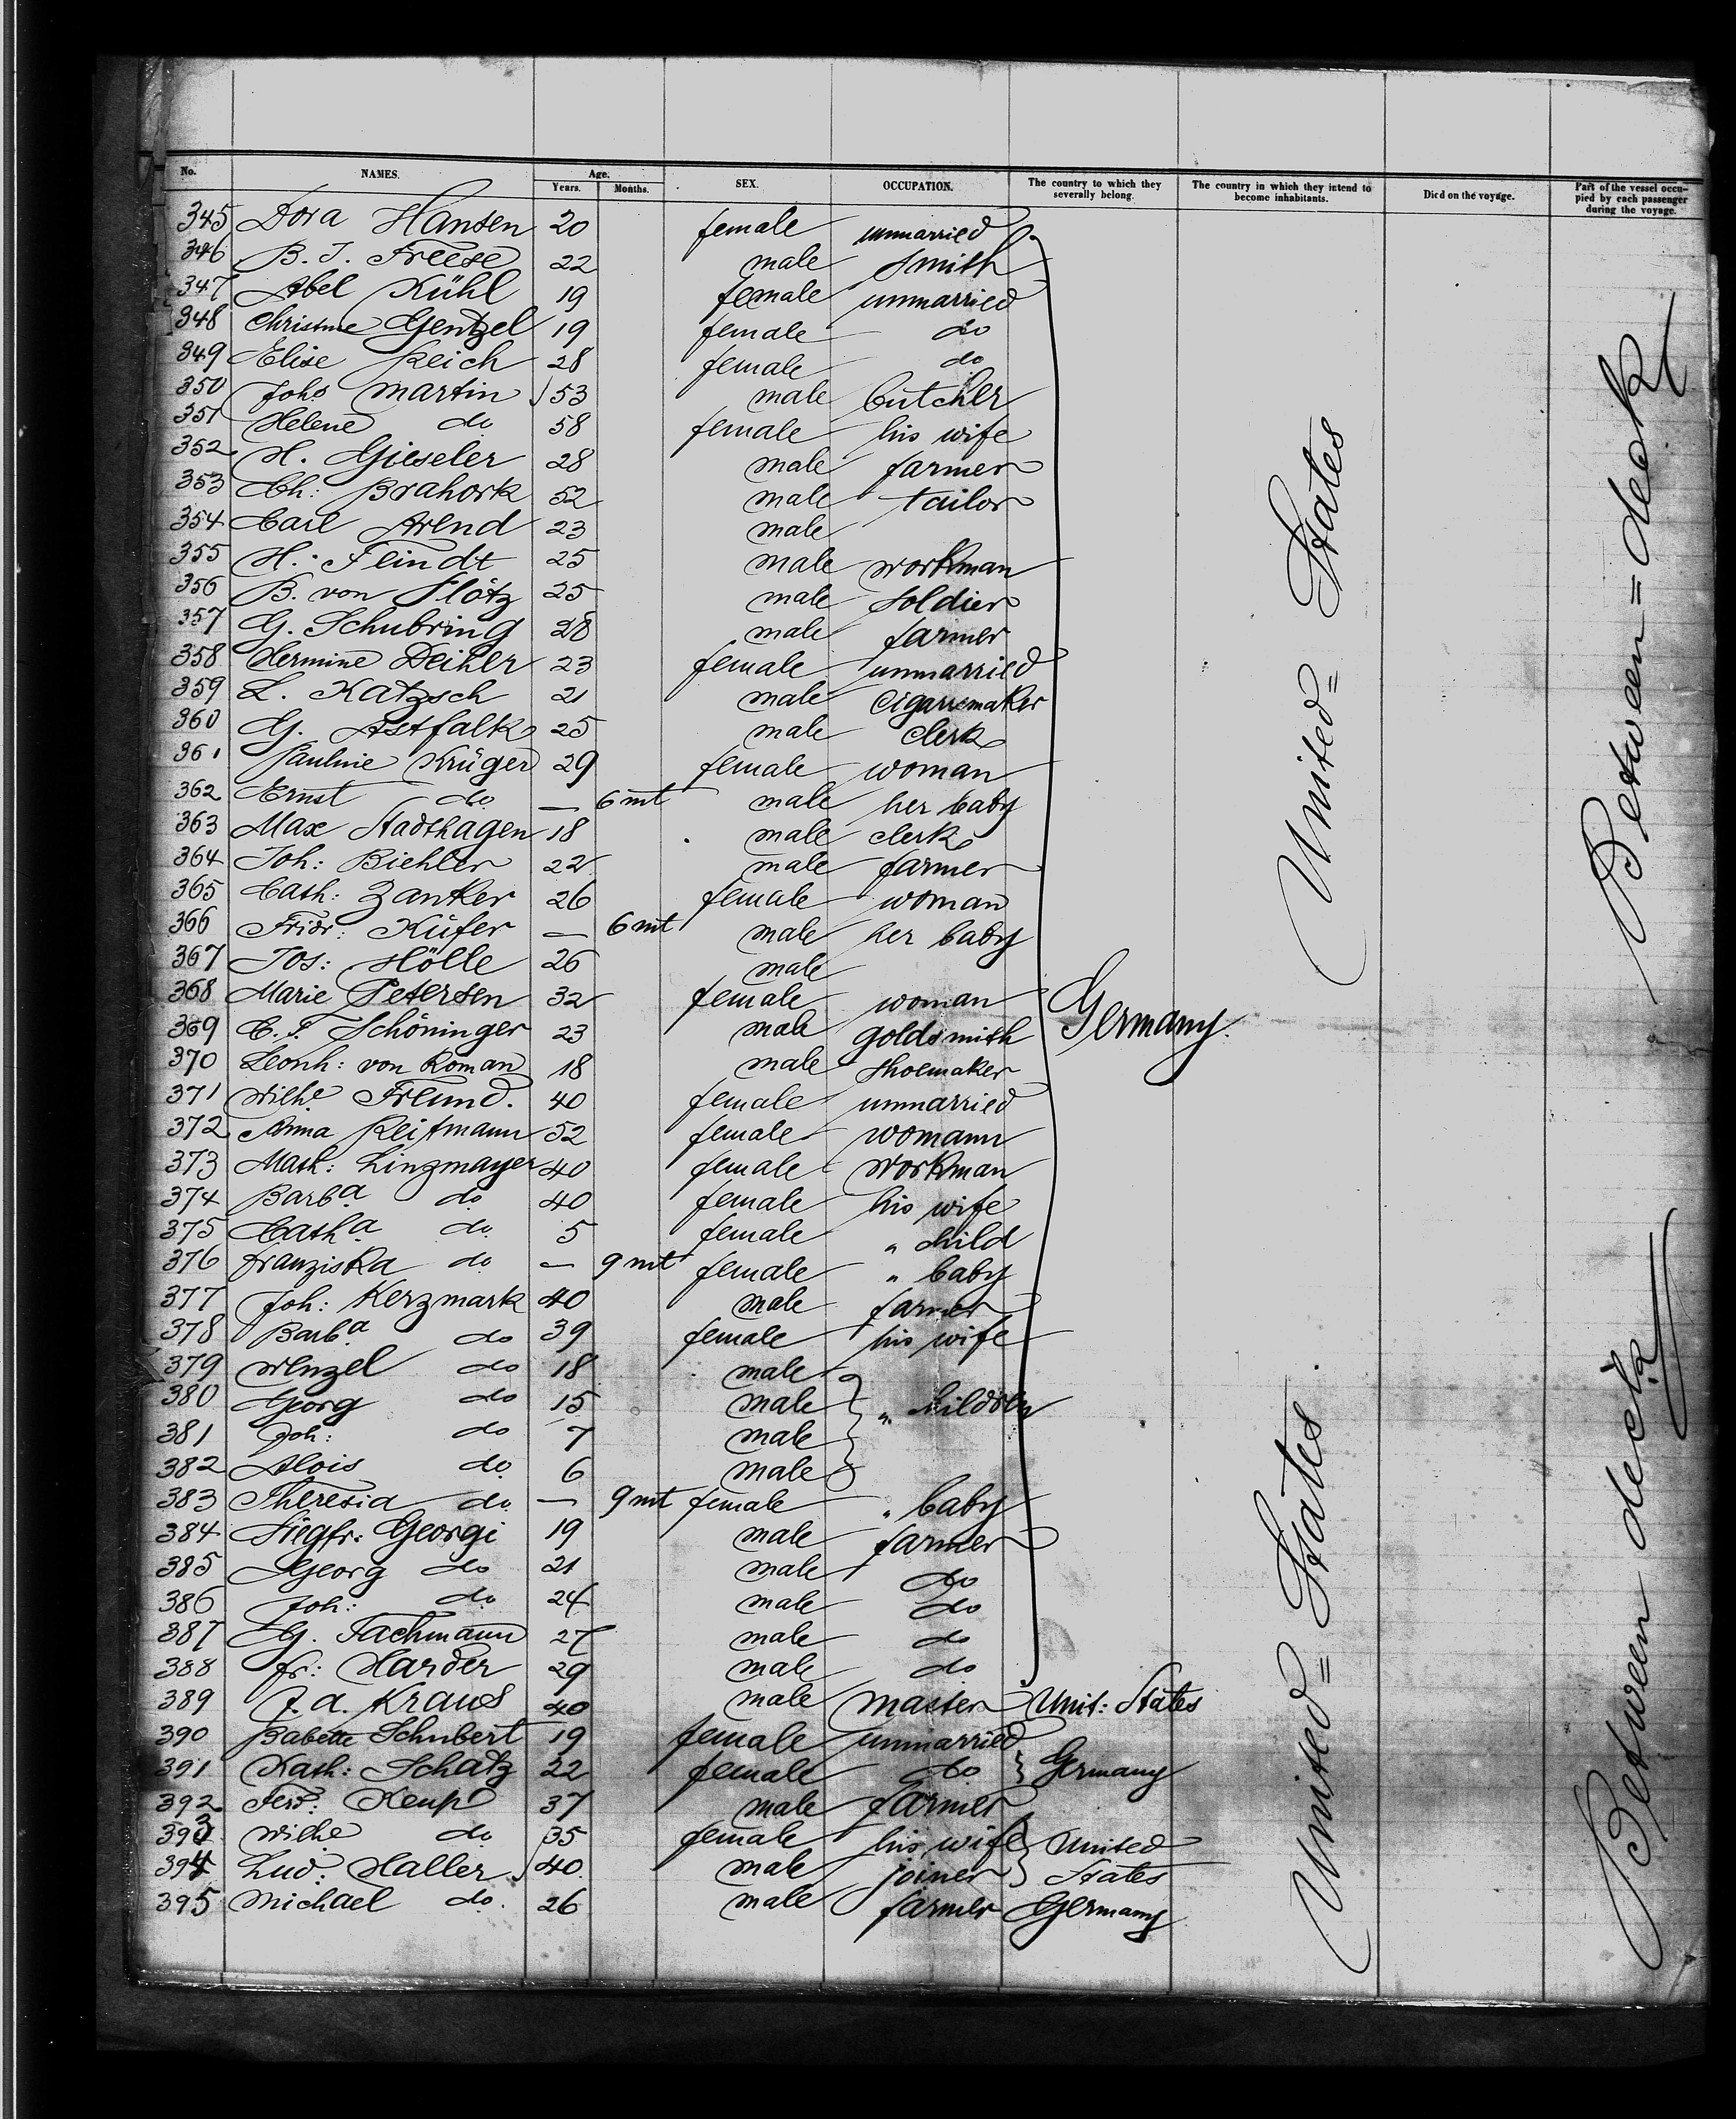 No. NAMES. Age. Years. Months. SEX. OCCUPATION. The country to which they severally belong. The country in which they intend to become inhabitants. Died on the voyage. Part of the vessel occupied by each passenger during the voyage.
345 Dora Hansen 20 female unmarried
346 B. J. Freese 22 male smith
347 Abel Kühl 19 female unmarried
348 Christine Gentzel 19 female do
349 Elise Reich 28 female do
350 Johs Martin 53 male butcher
351 Helene do 58 female his wife
352 H. Gieseler 28 male farmer
353 Ch: Brahork 52 male tailor
354 Carl Arend 23 male
355 H. Feindt 25 male workman
356 B. von Flötz 25 male soldier
357 G. Schubring 28 male farmer
358 Hermine Deihler 23 female unmarried
359 L. Katzsch 21 male cigarrmaker
360 G. Astfalk 25 male clerk
361 Pauline Krüger 29 female woman
362 Ernst do — 6 mt male her baby
363 Max Stadthagen 18 male clerk
364 Joh: Biehler 22 male farmer
365 Cath: Zanker 26 female woman
366 Fridr: Küfer — 6 mt male her baby
367 Jos: Hölle 26 male
368 Marie Petersen 32 female woman
369 C. F. Schöninger 23 male goldsmith Germany.
370 Leonh: von Roman 18 male shoemaker
371 Wilhe Freund. 40 female unmarried
372 Anna Reitmann 52 female womann
373 Math: Linzmayer 40 female workman
374 Barba do 40 female his wife
375 Catha do 5 female " child
376 Franziska do — 9 mt female " baby
377 Joh: Kerzmark 40 male farmer
378 Barba do 39 female his wife
379 Wenzel do 18 male
380 Georg do 15 male " children
381 Joh: do 7 male
382 Alois do 6 male
383 Theresia do — 9 mt female " baby
384 Siegfr: Georgi 19 male farmer
385 Georg do 21 male do
386 Joh: do 24 male do
387 G. Fachmann 27 male do
388 Fr: Harder 29 male do
389 J. A. Kraus 40 male master Unit: States
390 Babette Schubert 19 female unmarried
391 Kath: Schatz 22 female do Germany
392 Ferd: Keup 37 male farmer
393 Wilhe do 35 female his wife United
394 Lud: Haller 40 male joiner States
395 Michael do. 26 male farmer Germany
United= States
Between=deck
United= States
Between deck